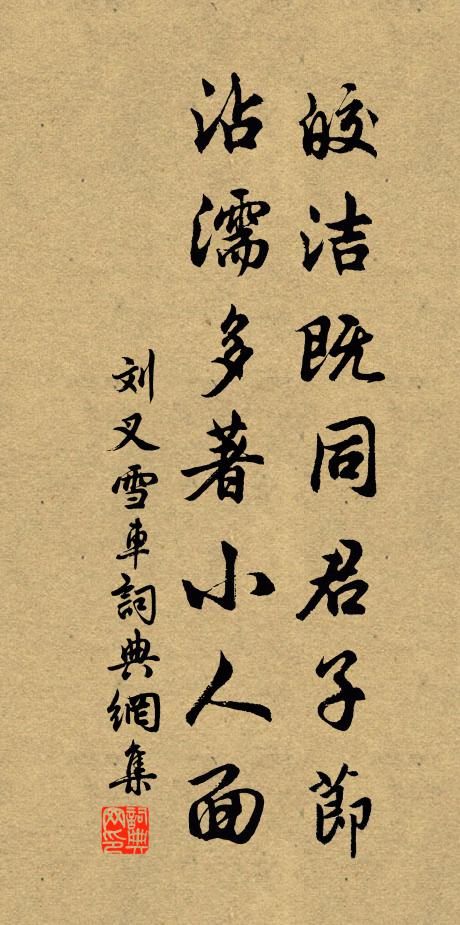 皎洁既同君子節
沾濡多著小人面
刘叉雪車詞典網集
詞典网印